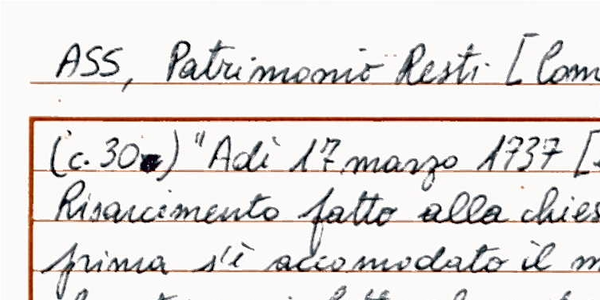 ASS, Patrimonio Resti [Com
(c. 30) "Adì 17 marzo 1737 [
Risarcimento fatto alla chies
prima s'è accomodato il m